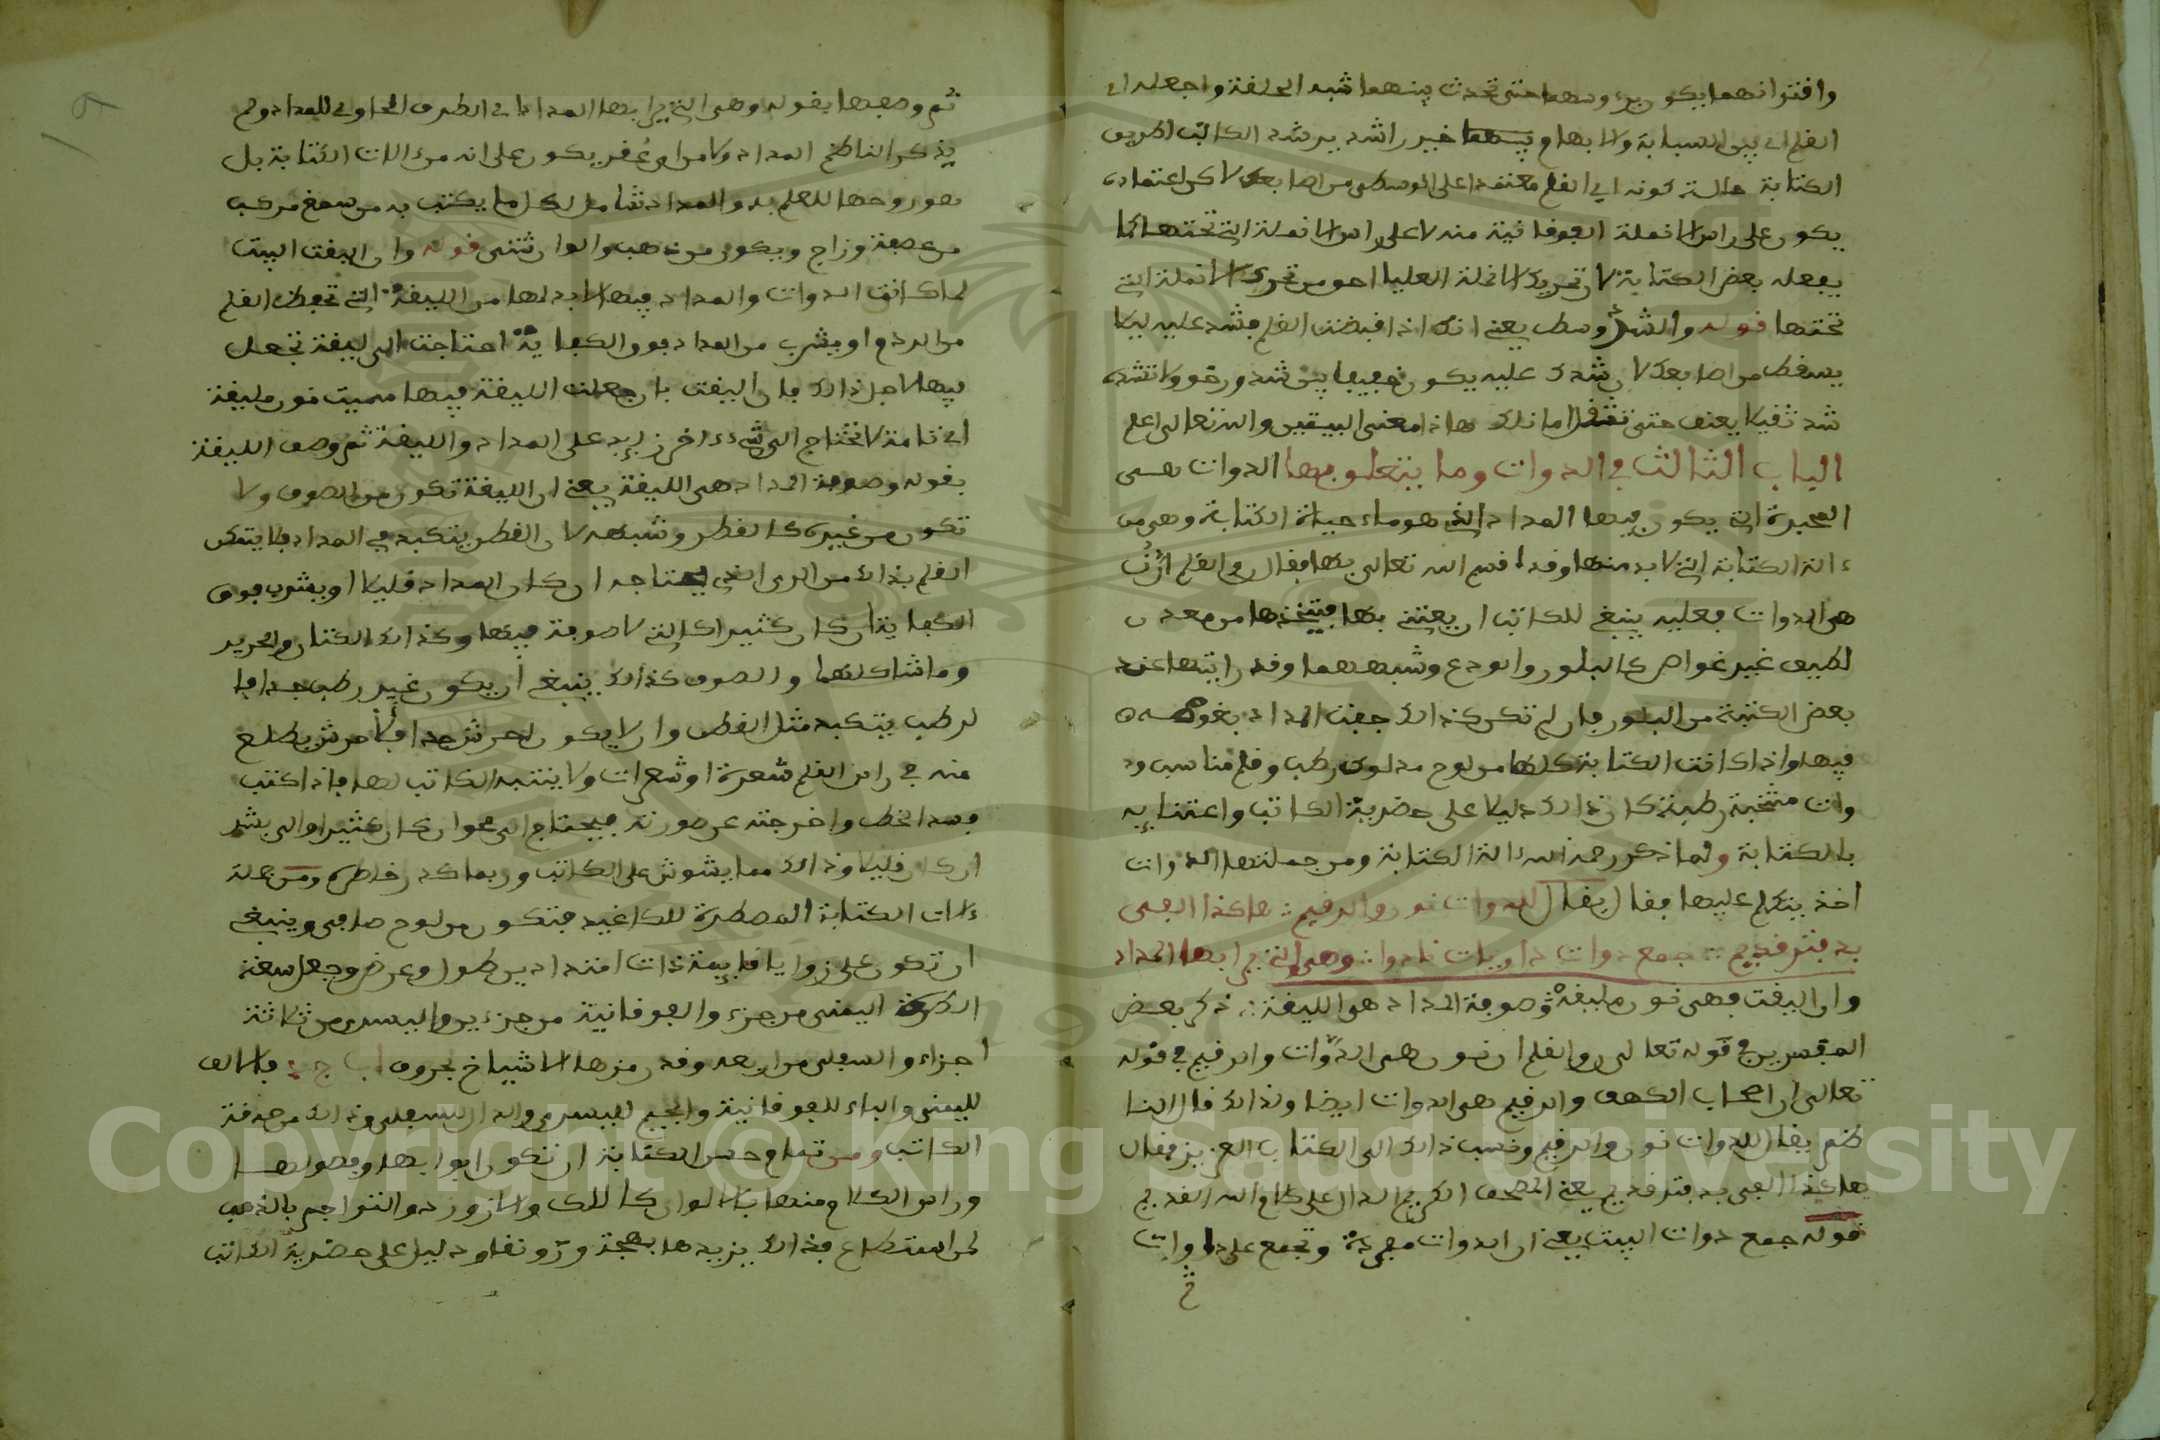 وافترانهما يكون وسطها حتى تحدث بينهما شبه الحلقة واجعله اي
القلم اي بين السبابة والابهام خير راشد يرشد الكاتب اي مريد
الكتابة حالة كونه اي القلم معتمدا على الوسطى من اصابعك لاكن اعتماده
يكون على راس الانملة الفوقانية منه لا على راس الانملة التي تحتها كما
يفعله بعض الكتابة لان تحريك الانملة العليا احق من تحريك الانملة التي
تحتها قوله والشد وسط يعني انك اذا قبضت القلم فشد عليه ليلا
يسقط من اصابعك لان شدك عليه يكون خفيفا بين شد ورخو ولا تشده
شد ثقيلا يعنف حتى تثقل اناملك هاذا معنى البيتين والله تعالى اعلم
الباب الثالث في الدوات وما يتعلق بها الدوات هي
المحبرة التي يكون فيها المداد الذي هو ماء حياة الكتابة وهي من
ءالة الكتابة التي لا بد منها وقد اقسم الله تعالى بها فقال ن والقلم
هي الدوات فعليه ينبغي للكاتب ان يعتني بها فيتخذها من معدن
لطيف غير غواص كالبلور والودع وشبههما وقد رايتها عند
بعض الكتبة من البلور فان لم تكن كذالك جفت المداد بغوصه
فيها واذا كانت الكتابة كلها من لوح مدلوك رطب وقلم مناسب ود
وات منتخبة رطبة كان ذالك دليلا على حضرية الكاتب واعتنايه
بالكتابة ولما ذكر رحمه الله ءالة الكتابة ومن جملتها الدوات
اخذ يتكلم عليها فقال يقال للدوات نون والرقيم هاكذا الفي
به فتر قديم جمع دوات داويات نادوا وهي التي يرا بها المداد
وان اليفت فهي نون مليفة وصوفة المداد هي الليفة ذكر بعض
المفسرين في قوله تعالى ن والقلم ان نون هي الدوات والرقيم في قوله
تعالى ان اصحاب الكهف والرقيم هي الدوات ايضا ولذالك قال النا
ظم يقال للدوات نون والرقيم ونسب ذالك الى الكتاب العزيز فقال
هاكذا الفي به فتر قديم يعني المصحف الكريم الدال على كلام الله القديم
قوله جمع دوات البيت يعني ان الدوات مفردة وتجمع على داوايات
ثم وصفها بقوله وهي التي يرا بها المداد اي الظرف الحاوي للمداد ولم
يذكر الناظم المداد ولا من اي عفر يكون على انه من ءالات الكتابة بل
هو روحها للعلم به والمداد شامل لكل ما يكتب به من سمغ مركب
من عصفة وزاج ويكون من ذهب والوان شتى قوله وان اليفت البيت
لما كانت الدوات والمداد فيها لا بد لها من الليفة التي تحفظ القلم
من الردع او يشرب من المداد فوق الكفاية احتاجت الى ليفة تجعل
فيها لاجل ذالك فان اليفت بان جعلت الليفة فيها سميت نون مليفة
اي تامة لا تحتاج الى شيء ءاخر زايد على المداد والليفة ثم وصف الليفة
بقوله وصوفة المداد هي الليفة يعني ان الليفة تكون من الصوف ولا
تكون من غيره كالقطن وشبهه لان القطن يتكبد في المداد فلا يتمكن
القلم بذالك من الري الذي يحتاجه ان كان المداد قليلا او يشرب فوق
الكفاية ان كان كثيرا كالتي لا صوفة فيها وكذالك الكتان والحرير
وما شاكلهما والصوف كذالك ينبغي ان يكون غير رطب جدا فا
لرطب يتكبد مثل القطن وان لا يكون احرش جدا فالاحرش يطلع
منه في راس القلم شعرة او شعرات ولا ينتبه الكاتب لها فاذا كتب
فسد الخط واخرجته عن صورته فيحتاج الى محوان كان كثيرا والى بشر
ان كان قليلا وذالك مما يشوش على الكاتب وربما كدر خاطره ومن جملة
ءالات الكتابة المسطرة للكاغيد فتكون من لوح صافي وينبغي
ان تكون على زوايا قايمة ذات امتداد بين طول وعرض وجعل سعة
الطرة اليمنى من جزء والفوقانية من جزءين واليسرى من ثلاثة
اجزاء والسفلى من اربعة وقد رمزها الاشياخ بحروف اب ج د فالالف
لليمنى والباء للفوقانية والجيم لليسرى والدال للسفلى وذالك من حذقة
الكاتب ومن تمام حسن الكتابة ان تكون ابوابها وفصولها
وراس الكلام منها بالالوان كاللك والازورد والتراجم بالذهب
لمن استطاع فذالك يزيدها بهجة ورونقا ودليل على حضرية الكاتب